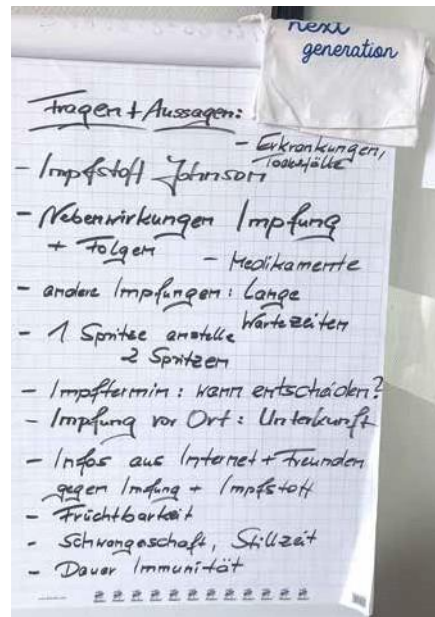 next
generation
Fragen + Aussagen:
- Erkrankungen,
Todesfälle
- Impfstoff Johnson
- Nebenwirkungen Impfung
+ Folgen
- Medikamente
- andere Impfungen: Lange
Wartezeiten
- 1 Spritze anstelle
2 Spritzen
- Impftermin: wann entscheiden?
- Impfung vor Ort: Unterkunft
- Infos aus Internet + Freunden
gegen Impfung + Impfstoff
- Früchtbarkeit
- Schwangeschaft, Stillzeit
- Dauer Immunität